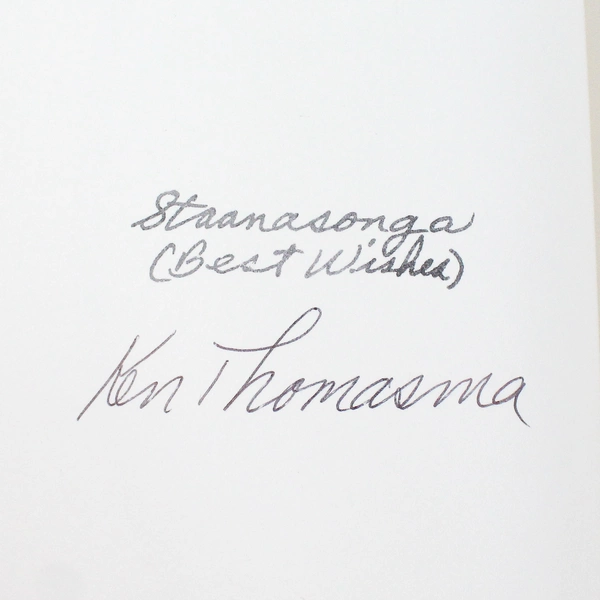 Staanasonga
(Best Wishes)
Ken Thomasma